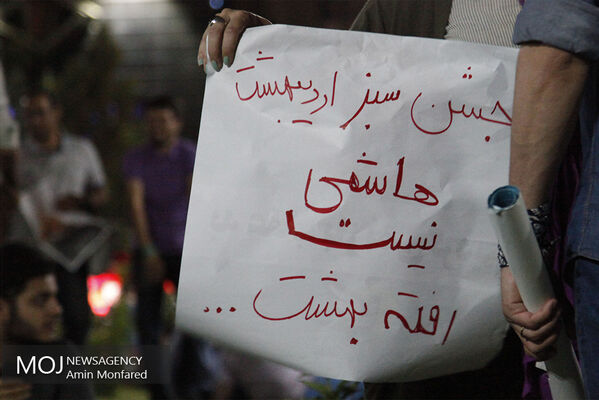 جشن سبز اردیبهشت
هاشمی
نیست
رفته بهشت ...
MOJ NEWSAGENCY
Amin Monfared